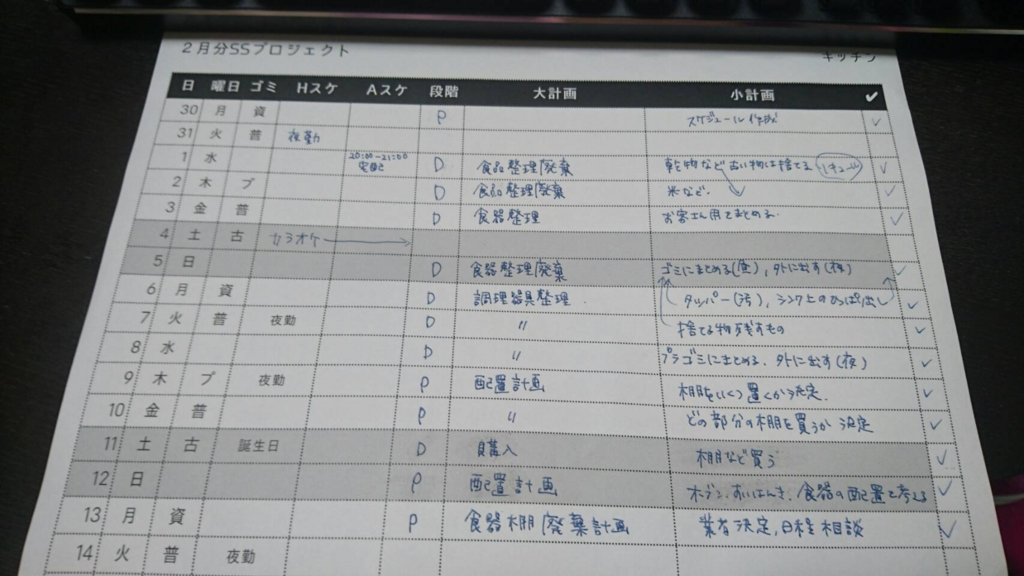 2月分SSプロジェクト キッチン
日 曜日 ゴミ Hスケ Aスケ 段階 大計画 小計画 ✔
30 月 資 P スケジュール作成 ✓
31 火 普 夜勤
1 水 20:00-21:00 D 食品整理/廃棄 乾物など古い物は捨てる ✓
2 木 プ D 食品整理/廃棄 米など. ✓
3 金 普 D 食器整理 お客さん用でまとめる. ✓
4 土 古 カラオケ
5 日 D 食器整理/廃棄 ゴミにまとめる(昼), 外に出す(夜) ✓
6 月 資 D 調理器具整理. タッパー(汚), シンク上のひっぱ出し ✓
7 火 普 夜勤 D 〃 捨てる物残すもの ✓
8 水 D 〃 プラゴミにまとめる. 外に出す(夜) ✓
9 木 プ 夜勤 P 配置計画 棚をいくつ置くか決定. ✓
10 金 普 P 〃 どの部分の棚を買うか決定 ✓
11 土 古 誕生日 D 購入 棚など買う ✓
12 日 P 配置計画 オーブン, すいはんき, 食器の配置を考える ✓
13 月 資 P 食器棚/廃棄計画 業者決定, 日程相談 ✓
14 火 普 夜勤